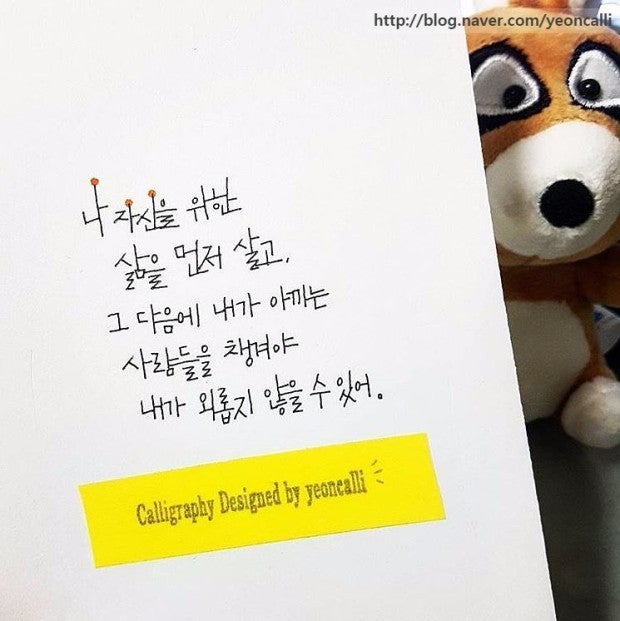 http://blog.naver.com/yeoncalli
나 자신을 위한
삶을 먼저 살고,
그 다음에 내가 아끼는
사람들을 챙겨야
내가 외롭지 않을 수 있어.
Calligraphy Designed by yeoncalli